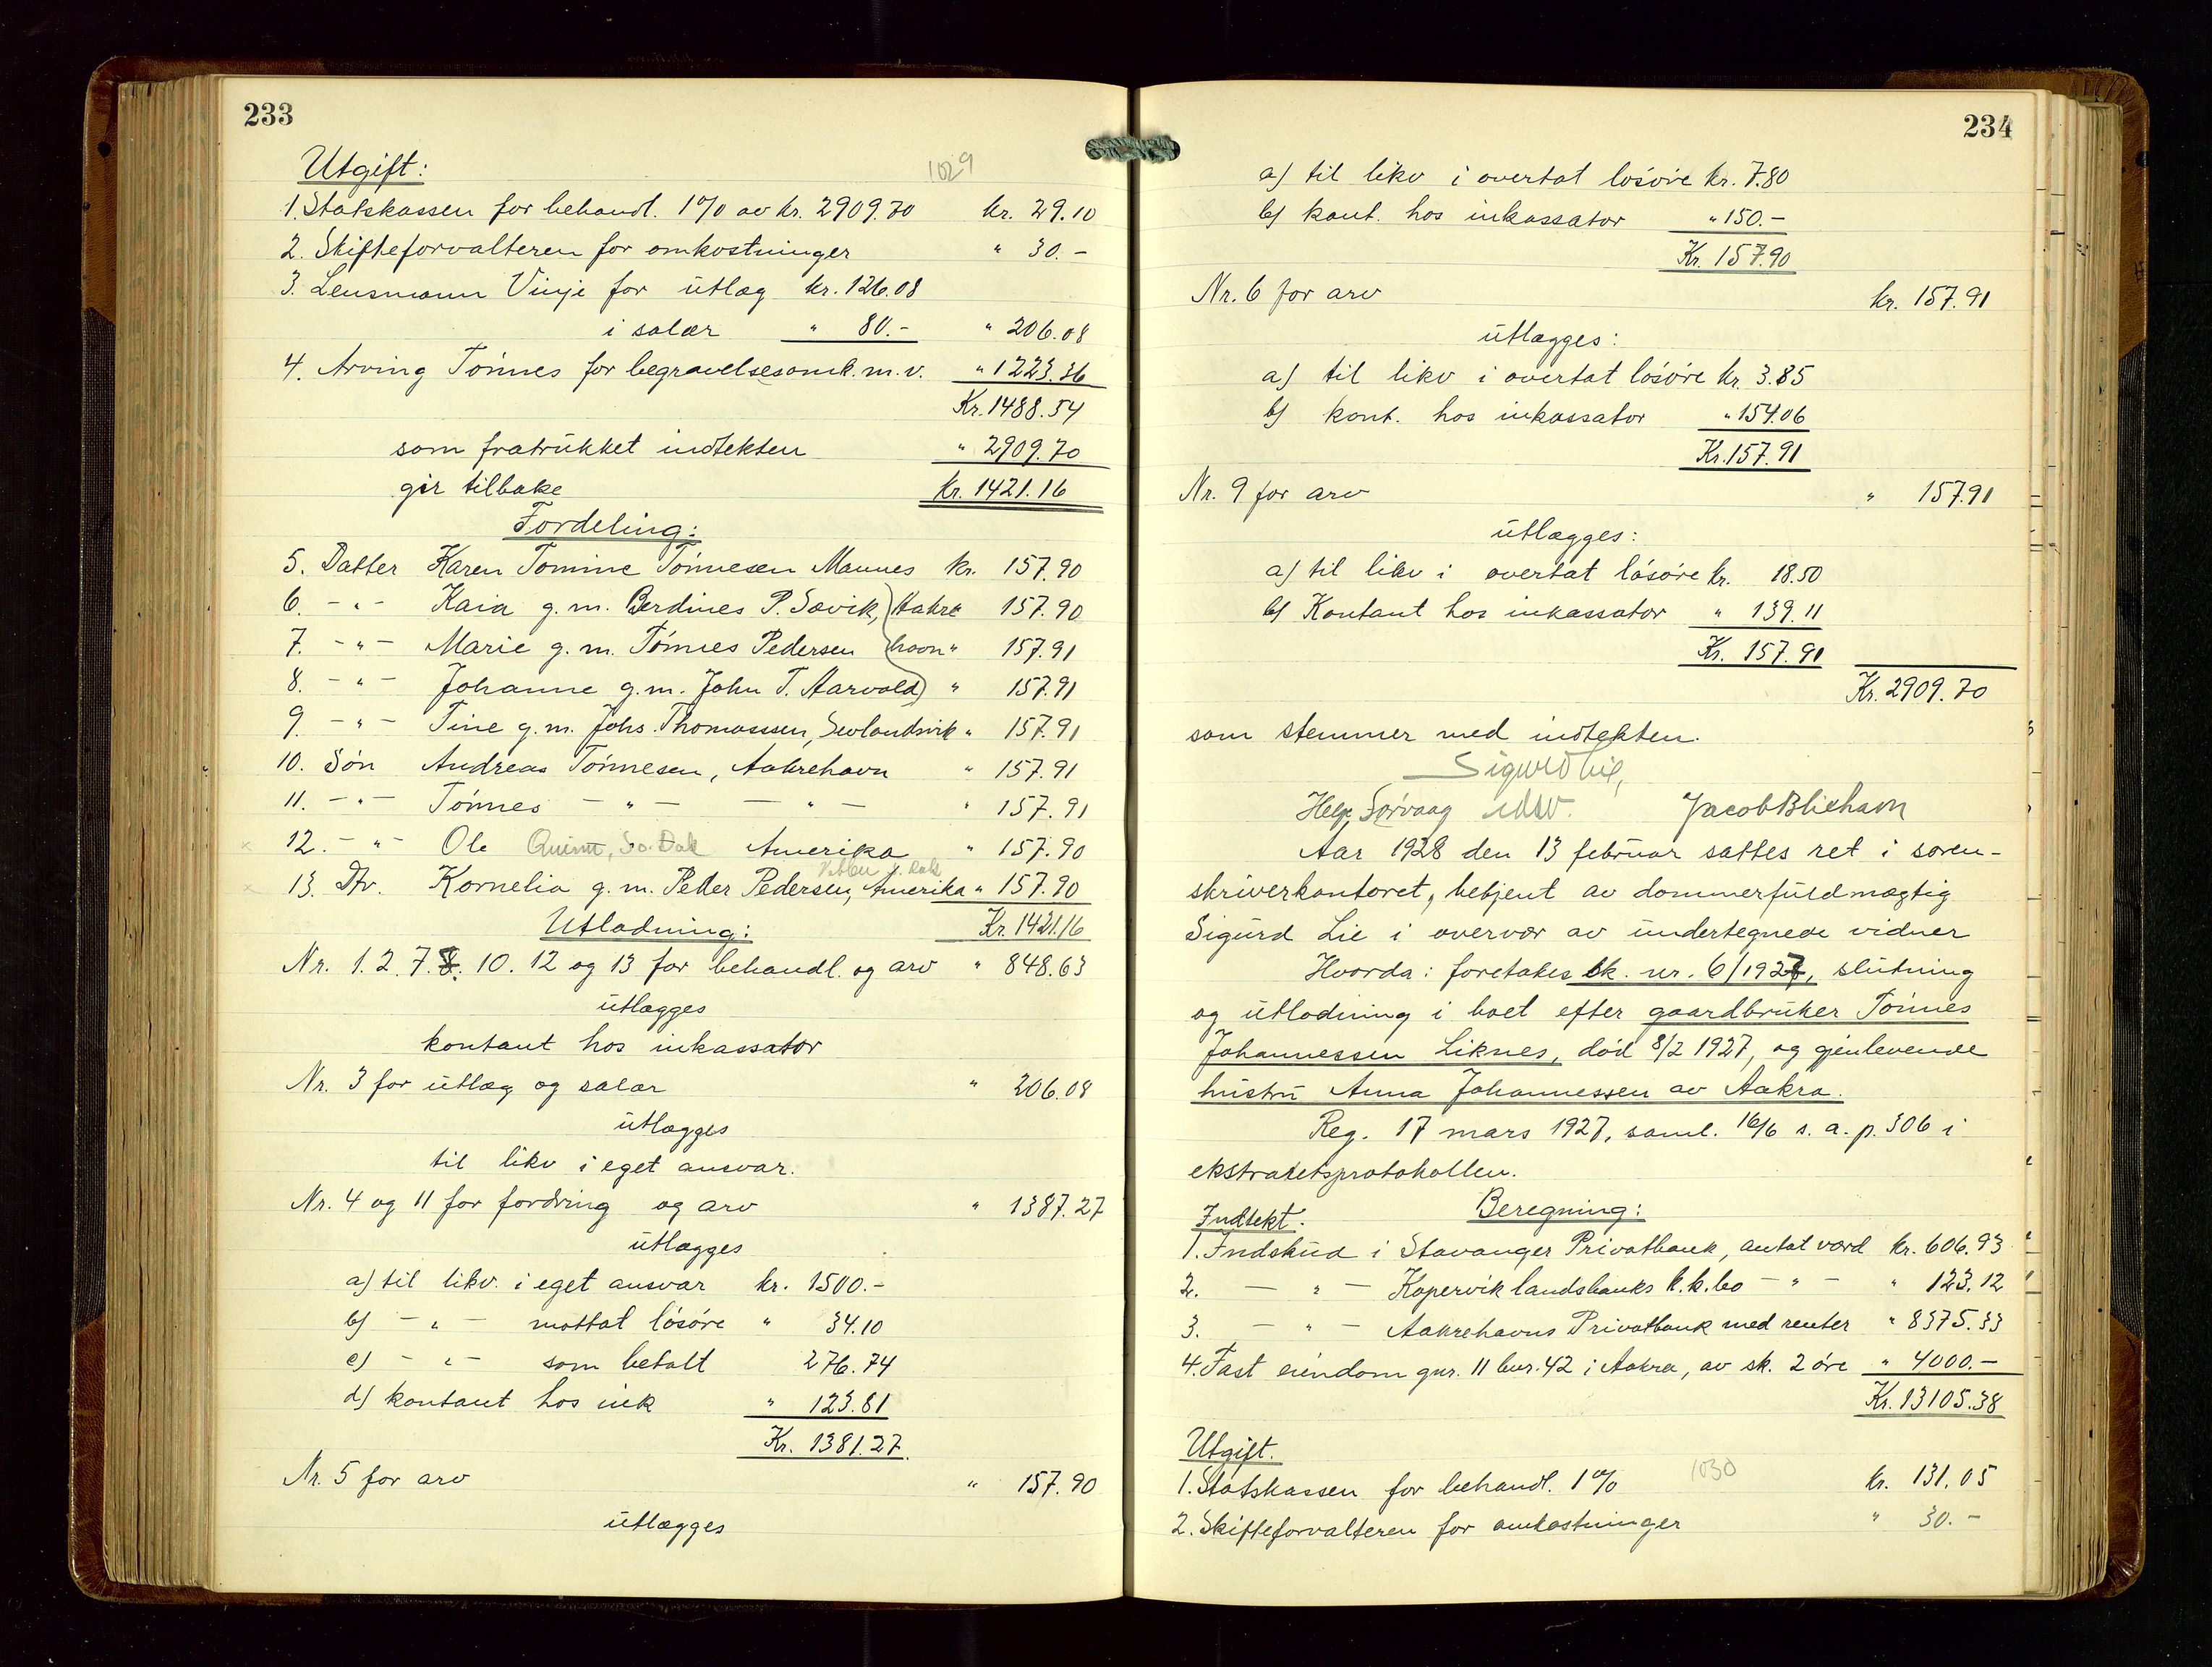 233
Utgift:
1029
1. Statskassen for behandl. 1% av kr. 2909.70 kr. 29.10
2. Skifteforvalteren for omkostninger " 30.-
3. Lensmann Vinje for utlæg kr. 126.08
i salær " 80.- " 206.08
4. Arving Tönnes for begravelsesomk. m.v. " 1223.36
Kr. 1488.54
som fratrukket indtekten " 2909.70
gir tilbake kr. 1421.16
Fordeling:
5. Datter Karen Tomine Tönnesen Mannes kr. 157.90
6. -"- Kaia g.m. Berdines P. Sævik, Aakre 157.90
7. -"- Marie g.m. Tönnes Pedersen havn " 157.91
8. -"- Johanne g.m. John T. Aarvold " 157.91
9. -"- Tine g.m. Johs. Thomassen, Sevlandsvik " 157.91
10. Sön Andreas Tönnesen, Aakrehavn " 157.91
11. -"- Tönnes -"- -"- " 157.91
12. -"- Ole Quinn, So. Dak Amerika " 157.90
13. Dtr. Kornelia g.m. Peder Pedersen, Amerika " 157.90
Utlodning: Kr. 1421.16
Nr. 1. 2. 7. 8. 10. 12 og 13 for behandl. og arv " 848.63
utlægges
kontant hos inkassator
Nr. 3 for utlæg og salær " 206.08
utlægges
til likv i eget ansvar.
Nr. 4 og 11 for fordring og arv " 1387.27
utlægges
a) til likv. i eget ansvar kr. 1500.-
b) -"- mottat lösöre " 34.10
c) -"- som betalt 276.74
d) kontant hos ink " 123.81
Kr. 1381.27
Nr. 5 for arv " 157.90
utlægges
234
a) til likv i overtat lösöre kr. 7.80
b) kont. hos inkassator " 150.-
Kr. 157.90
Nr. 6 for arv kr. 157.91
utlægges:
a) til likv i overtat lösöre kr. 3.85
b) kont. hos inkassator " 154.06
Kr. 157.91
Nr. 9 for arv " 157.91
utlægges:
a) til likv i overtat lösöre kr. 18.50
b) Kontant hos inkassator " 139.11
Kr. 157.91
Kr. 2909.70
som stemmer med indtekten.
Sigurd Lie,
Helge Sørvaag Jacob Bliehavn
Aar 1928 den 13 februar sattes ret i soren-
skriverkontoret, betjent av dommerfuldmægtig
Sigurd Lie i overvær av undertegnede vidner
Hvorda: foretakes sk. nr. 6/1927, slutning
og utlodning i boet efter gaardbruker Tönnes
Johannessen Liknes, död 8/2 1927, og gjenlevende
hustru Anna Johannessen av Aakra.
Reg. 17 mars 1927, saml. 16/6 s.a. p. 306 i
ekstraretsprotokollen.
Beregning:
Indtekt.
1. Indskud i Stavanger Privatbank, antat værd kr. 606.93
2. -"- Kopervik landsbanks k.k.bo -"- " 123.12
3. -"- Aakrehavns Privatbank med renter " 8375.33
4. Fast eiendom gnr. 11 bnr. 42 i Aakra, av sk. 2 öre " 4000.-
Kr. 13105.38
Utgift.
1030
1. Statskassen for behandl. 1% kr. 131.05
2. Skifteforvalteren for omkostninger " 30.-